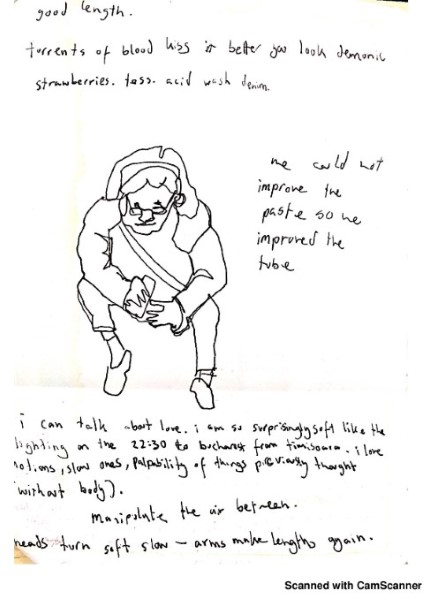 good length.
torrents of blood kiss is better you look demonic
strawberries. tess. acid wash denim
we could not
improve the
paste so we
improved the
tube
i can talk about love. i am so surprisingly soft like the
lighting on the 22:30 to bucharest from timisoara. i love
slow ones, palpability of things previously thought
without body).
manipulate the air between.
heads turn soft slow – arms make lengths again.
Scanned with CamScanner